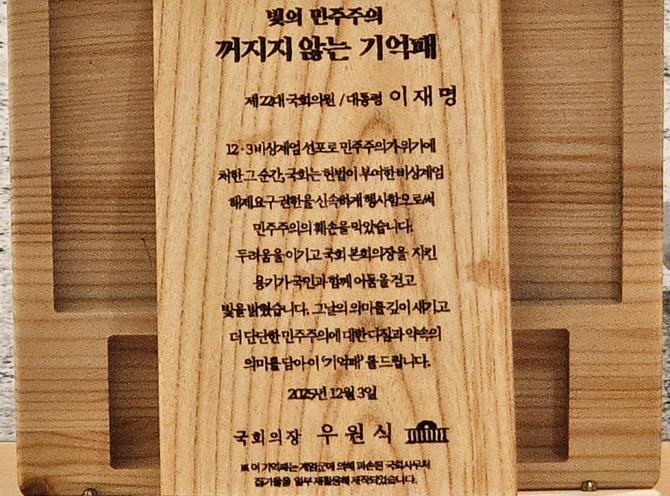 빛의 민주주의
꺼지지 않는 기억패
제22대 국회의원 / 대통령 이재명
12·3 비상계엄 선포로 민주주의가 위기에
처한 그 순간, 국회는 헌법이 부여한 비상계엄
해제요구 권한을 신속하게 행사함으로써
민주주의의 훼손을 막았습니다.
두려움을 이기고 국회 본회의장을 지킨
용기가 국민과 함께 어둠을 걷고
빛을 밝혔습니다. 그날의 의미를 깊이 새기고
더 단단한 민주주의에 대한 다짐과 약속의
의미를 담아 이 '기억패'를 드립니다.
2025년 12월 3일
국회의장 우원식
※ 이 기억패는 계엄군에 의해 파손된 국회사무처
집기물을 일부 재활용해 제작되었습니다.